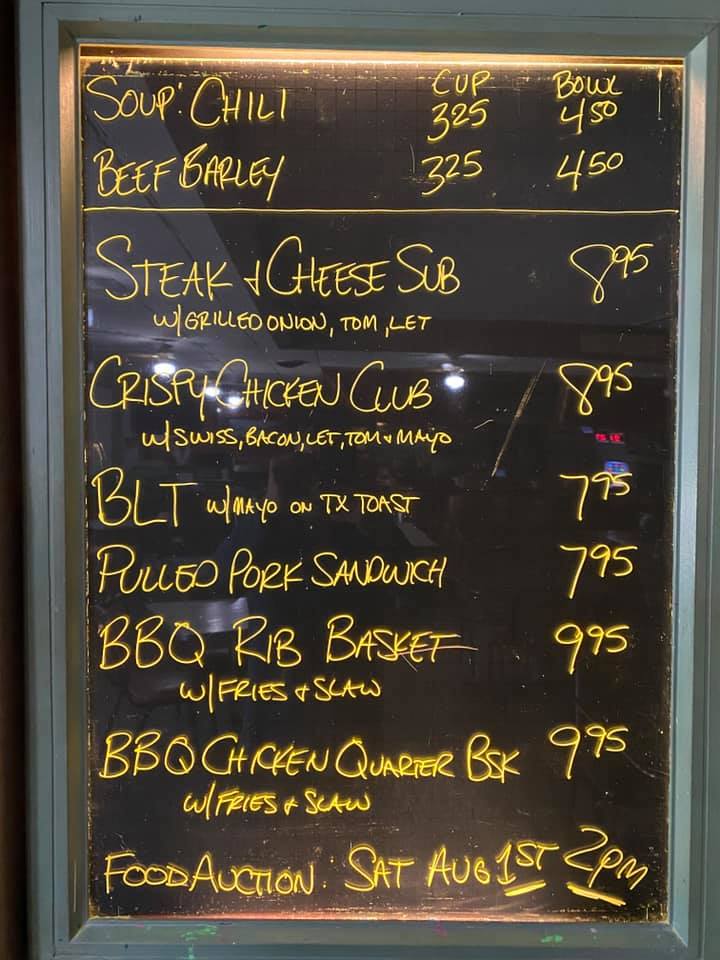 CUP BOWL
SOUP: CHILI 325 450
BEEF BARLEY 325 450
STEAK & CHEESE SUB 895
W/GRILLED ONION, TOM, LET
CRISPY CHICKEN CLUB 895
W/SWISS, BACON, LET, TOM & MAYO
BLT W/MAYO ON TX TOAST 795
PULLED PORK SANDWICH 795
BBQ RIB BASKET 995
W/FRIES & SLAW
BBQ CHICKEN QUARTER BSK 995
W/FRIES & SLAW
FOOD AUCTION: SAT AUG 1ST 2PM